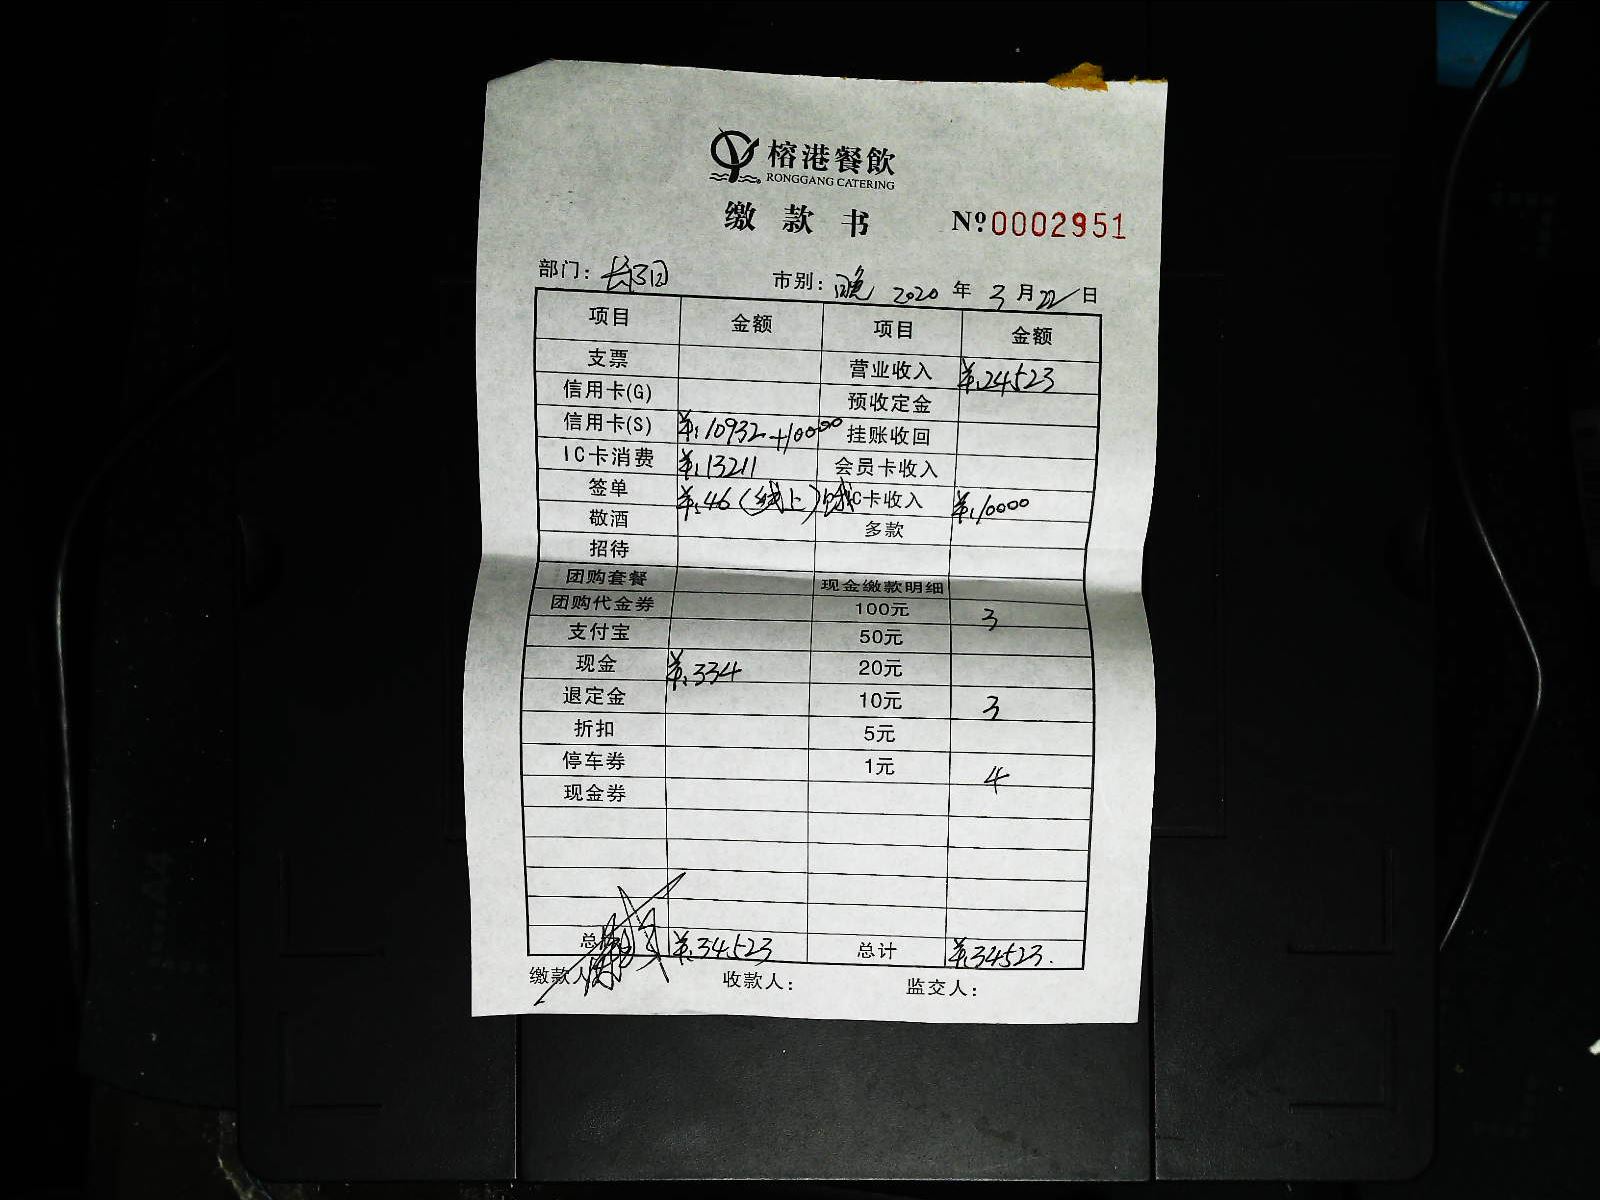 榕港餐飲
RONGGANG CATERING
缴款书 Nº 0002951
部门: 市别: 晚 2020 年 3 月 22 日
项目 金额 项目 金额
支票 营业收入 ¥:24523
信用卡(G) 预收定金
信用卡(S) ¥:10932+10000 挂账收回
IC卡消费 ¥:13211 会员卡收入
签单 ¥:46(线上) IC卡收入 ¥:10000
敬酒 多款
招待
团购套餐 现金缴款明细
团购代金券 100元 3
支付宝 50元
现金 ¥:334 20元
退定金 10元 3
折扣 5元
停车券 1元 4
现金券
总计 ¥:34523 总计 ¥:34523.
缴款人 收款人: 监交人: